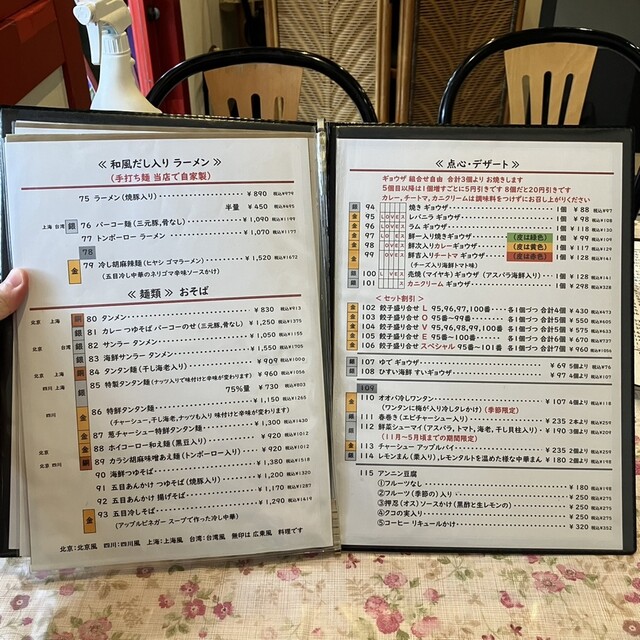 ≪ 和風だし入り ラーメン ≫
(手打ち麺 当店で自家製)
75 ラーメン(焼豚入り) ¥890 税込¥979
半量 ¥450 税込¥495
上海 台湾 銀 76 パーコー麺(三元豚,骨なし) ¥1,090 税込¥1199
77 トンポーロー ラーメン ¥1,070 税込¥1177
78
金 79 冷し胡麻辣麺(ヒヤシ ゴマラーメン) ¥1,520 税込¥1672
(五目冷し中華のネリゴマ辛味ソースかけ)
≪ 麺類 ≫ おそば
北京 上海 銅 80 タンメン ¥830 税込¥913
銀 81 カレー つゆそば パーコーのせ(三元豚,骨なし) ¥1,250 税込¥1375
北京 台湾 銀 82 サンラー タンメン ¥1,050 税込¥1155
銀 83 海鮮サンラー タンメン ¥1,550
北京 上海 銅 84 タンタン麺(干し海老入り) ¥909
四川 上海 銀 85 特製タンタン麺(ナッツ入りで味付けと辛味が変わります) ¥960 税込¥1056
75%量 ¥730 税込¥803
四川 金 86 特鮮タンタン麺 ¥1,150 税込¥1265
(チャーシュー,干し海老,ナッツも入り 味付けと辛味が変わります)
金 87 葱チャーシュー特鮮タンタン麺 ¥1,300
北京 金 88 ホイコーロー和え麺(黒豆入り) ¥920 税込¥1012
北京 四川 銅 89 カラシ胡麻味噌あえ麺(トンポーロー入り) ¥920 税込¥1012
90 海鮮つゆそば ¥1,380 税込¥1518
91 五目あんかけ つゆそば(焼豚入り) ¥1,200 税込¥1320
92 五目あんかけ 揚げそば ¥1,170 税込¥1287
金 93 五目冷しそば ¥1,290 税込¥1419
(アップルビネガー スープで作った冷し中華)
北京:北京風 四川:四川風 上海:上海風 台湾:台湾風 無印は 広東風 料理です
≪ 点心・デザート ≫
ギョウザ 組合せ自由 合計3個よりお焼きします
5個目以降は1個増すごとに5円引きです 8個だと20円引きです
カレー,チートマ,カニクリームは調味料をつけずにお召し上がりください
銀 94 焼き ギョウザ 1個 ¥88 税込¥97
金 95 LOVES レバニラ ギョウザ 1個 ¥98 税込¥108
金 96 LOVES ラム ギョウザ 1個 ¥118 税込¥130
金 97 OVES 鮮一入り焼きギョウザ (皮は緑色) 1個 ¥99 税込¥109
金 98 OVES 鮮次入りカレーギョウザ (皮は黄色) 1個 ¥108 税込¥119
金 99 OVES 鮮吉入りチートマ ギョウザ (皮は赤色) 1個 ¥117 税込¥129
(チーズ入り海鮮トマト味)
銀 100 LVES 売焼(マイヤキ) ギョウザ(アスパラ海鮮入り) 1個 ¥128 税込¥141
銀 101 S カニクリーム ギョウザ 1個 ¥298 税込¥328
<セット割引>
金 102 餃子盛り合せ L 95,96,97,100番 各1個づつ 合計4個 ¥430 税込¥473
金 103 餃子盛り合せ O 95番~99番 各1個づつ 合計5個 ¥550 税込¥605
金 104 餃子盛り合せ V 95,96,98,99,100番 各1個づつ 合計5個 ¥575 税込¥633
金 105 餃子盛り合せ E 95番~100番 各1個づつ 合計6個 ¥670 税込¥737
金 106 餃子盛り合せ スペシャル 95番~101番 各1個づつ 合計7個 ¥960 税込¥1056
銀 107 ゆで ギョウザ ¥69 5個より 税込¥76
銀 108 ひすい海鮮 すいギョウザ ¥97 4個より 税込¥107
109
金 110 オオバ冷しワンタン ¥107 税込¥118
(ワンタンに梅が入り冷しタレかけ)(季節限定)
銀 111 春巻き(エビチャーシュー入り) ¥235 2本より 税込¥259
銀 112 鮮菜シューマイ(アスパラ,トマト,海老,干し貝柱入り) ¥190 3個より 税込¥209
(11月~5月頃までの期間限定)
金 113 チャーシュー アップルパイ ¥235 2本より 税込¥259
金 114 レモまん(栗入り),レモンタルトを温めた様な中華まん ¥180 2個より 税込¥198
115 アンニン豆腐
①フルーツなし ¥180 税込¥198
②フルーツ(季節の)入り ¥250 税込¥275
③押忍(オス)ソースかけ(黒酢と生レモンの) ¥250 税込¥275
④クコの実入り ¥250 税込¥275
⑤コーヒー リキュールかけ ¥320 税込¥352